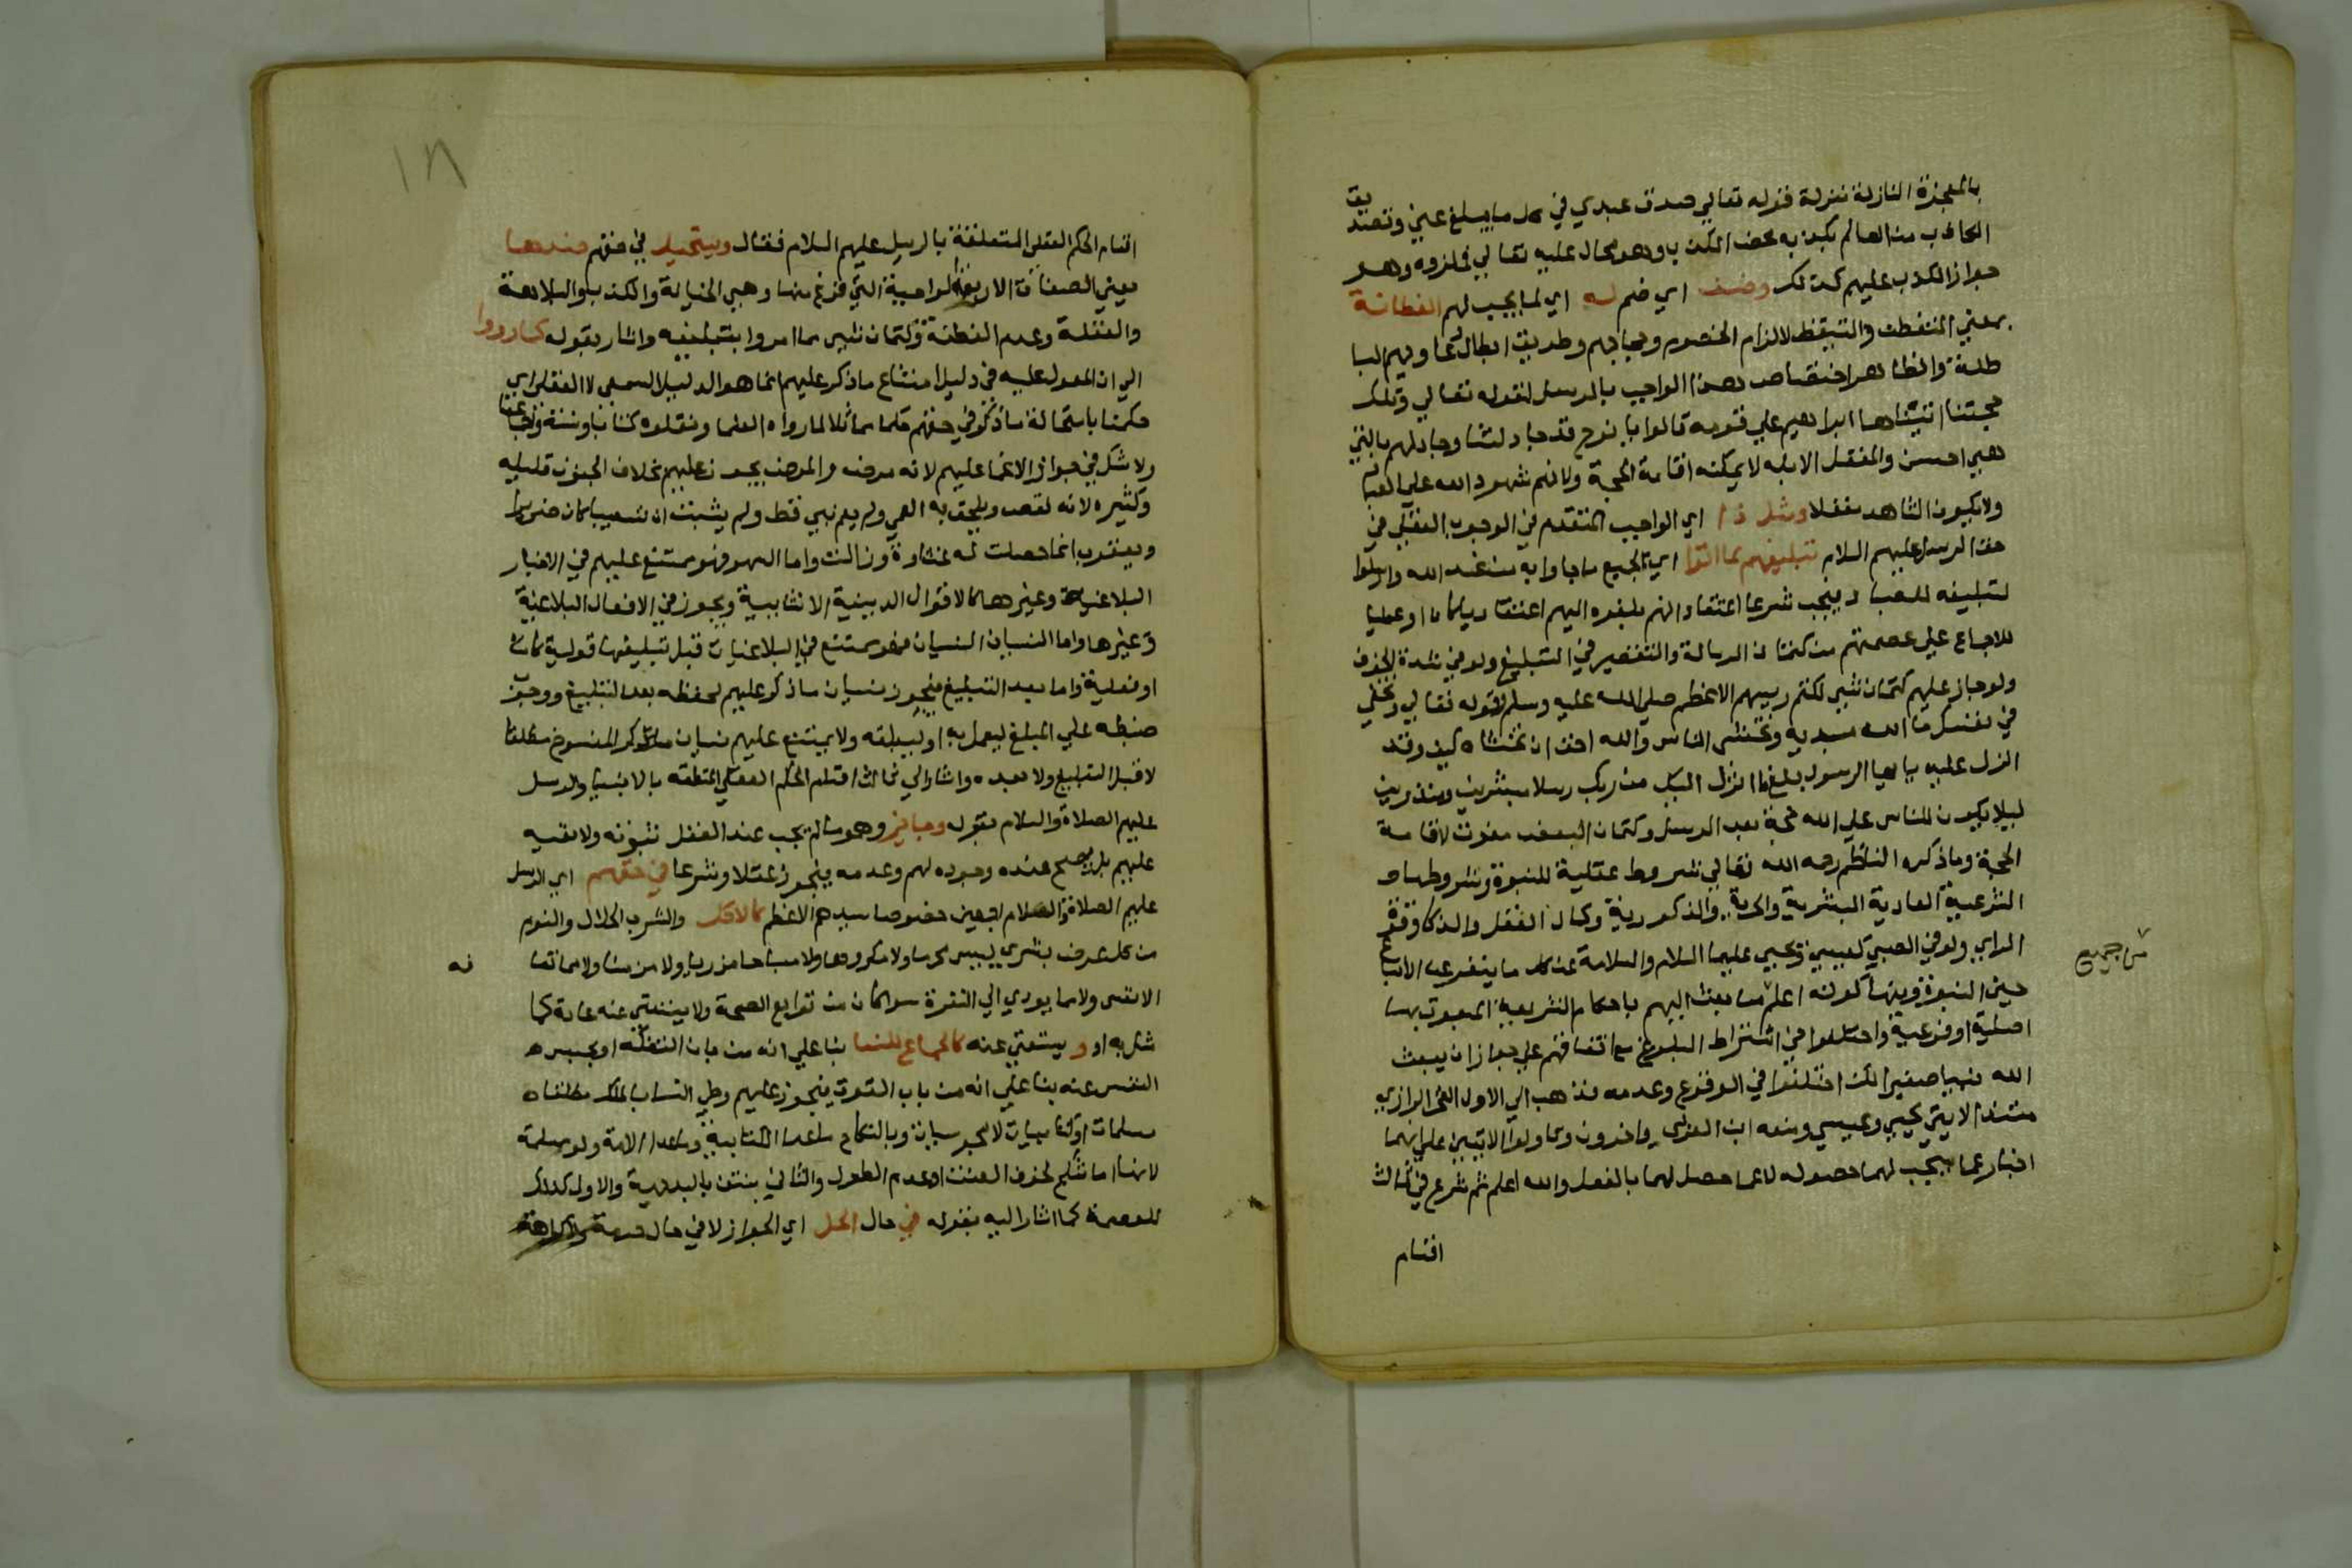 بالمعجزة النازلة منزلة قوله تعالي صدق عبدي في كل ما يبلغ عني وتصديق
الكاذب من العالم بكذبه محض الكذب وهو محال عليه تعالي فملزومه وهو
جواز الكذب عليهم كذلك وضف اي ضم له اي لما يجب لهم الفطانة
بمعني التفطن والتيقظ لالزام الخصوم وحجاجهم وطريق ابطال دعاويهم البا
طلة والظاهر اختصاص هذا الواجب بالرسل لقوله تعالي وتلك
حجتنا اتيناها ابراهيم علي قومه قالوا يا نوح قد جادلتنا وجادلهم بالتي
هي احسن والمغفل الابله لا يمكنه اقامة الحجة ولانهم شهود الله علي العباد
ولا يكون الشاهد مغفلا ومثل ذا اي الواجب المتقدم في الوجوب العقلي في
حق الرسل عليهم السلام تبليغهم لما اتوا اي لجميع ما جاوا به من عند الله وارسلوا
لتبليغه للعباد فيجب شرعا اعتقاد انهم بلغوه اليهم اعتقاديا كان او عمليا
للاجماع علي عصمتهم من كتمان الرسالة والتقصير في التبليغ ولو في شدة الخوف
ولو جاز عليهم كتمان شي لكتم رييسهم الاعظم صلي الله عليه وسلم قوله تعالي وتخفي
في نفسك ما الله مبديه وتخشي الناس والله احق ان تخشاه كيف وقد
انزل عليه يا ايها الرسول بلغ ما انزل اليك من ربك رسلا مبشرين ومنذرين
ليلا يكون للناس علي الله حجة بعد الرسل وكتمان البعض مفوت لاقامة
الحجة وما ذكره الناظم رحمه الله تعالي شروط عقلية للنبوة وشروطها
الشرعية العادية البشرية والحرية والذكورية وكمال العقل والذكا وقوة
الراي ولو في الصبي كعيسي ويحيي عليهما السلام والسلامة عن كل ما ينفر عن الاتباع
حين النبوة ومنها كونه اعلم من بعث اليهم باحكام الشريعة المبعوث بها
من جميع
اصلية او فرعية واختلفوا في اشتراط البلوغ مع اتفاقهم علي جواز ان يبعث
الله نبيا صغيرا لكن اختلفوا في الوقوع وعدمه فذهب الي الاول الفخر الرازي
مستندا لايتي يحيي وعيسي ومنعه ابن العربي واخرون وتاولوا الايتين علي انهما
اخبار عما يجب لهما حصوله لا عما حصل لهما بالفعل والله اعلم ثم شرع في ثالث
اقسام
١٨
اقسام الحكم العقلي المتعلقة بالرسل عليهم السلام فقال ويستحيل في حقهم ضدها
يعني الصفات الاربعة الواجبة التي فرغ منها وهي الخيانة والكذب والبلاهة
والغفلة وعدم الفطنة وكتمان شي مما امروا بتبليغه واشار بقوله كما رووا
الي ان المعول عليه في دليل امتناع ما ذكر عليهم انما هو الدليل السمعي لا العقلي اي
حكمنا باستحالة ما ذكر في حقهم حكما مماثلا لما رواه العلما ونقلوه كتابا وسنة واجماعا
ولا شك في جواز الاغما عليهم لانه مرض والمرض يجوز عليهم بخلاف الجنون قليله
وكثيره لانه نقص ويلحق به العمي ولم يعم نبي قط ولم يثبت ان شعيبا كان ضريرا
ويعقوب انما حصلت له غشاوة وزالت واما السهو فهو ممتنع عليهم في الاخبار
البلاغية وغيرها كالاقوال الدينية الانشايية ويجوز في الافعال البلاغية
وغيرها واما النسيان فهو ممتنع في البلاغيات قبل تبليغها قولية كانت
او فعلية واما بعد التبليغ فيجوز نسيان ما ذكر عليهم لحفظه بعد التبليغ ووجوب
ضبطه علي المبلغ ليعمل به او ليبلغه ولا يمتنع عليهم نسيان المنسوخ مطلقا
لا قبل التبليغ ولا بعده واشار الي ثالث اقسام الحكم العقلي المتعلقة بالانبيا والرسل
عليهم الصلاة والسلام بقوله وجايز وهو ما لم يجب عند العقل ثبوته ولا نفيه
عليهم بل يصح عنده وجوده لهم وعدمه فيجوز عقلا وشرعا في حقهم اي الرسل
عليهم الصلاة والسلام اجمعين خصوصا سيدهم الاعظم كالاكل والشرب الحلال والنوم
من كل عرض بشري ليس محرما ولا مكروها ولا مباحا مزريا ولا مزمنا ولا مما تعا
فه
الانفس ولا مما يودي الي النفرة سوا كان من توابع الصحة ولا يستغني عنه عادة كما
مثل به او يستغني عنه كالجماع للنسا بنا علي انه من باب التفكه او يحبس
النفس عنه بنا علي انه من باب القوت فيجوز عليهم وطي النسا بالملك مطلقا
مسلمات او كتابيات لا مجوسيات وبالنكاح ما عدا الكتابية وما عدا الامة ولو مسلمة
لانها انما تنكح لخوف العنت او عدم الطول والثاني منتف بالبديهة والاول كذلك
للعصمة كما اشار اليه بقوله في حال الحل اي الجواز لا في حال حرمة ولا كراهة